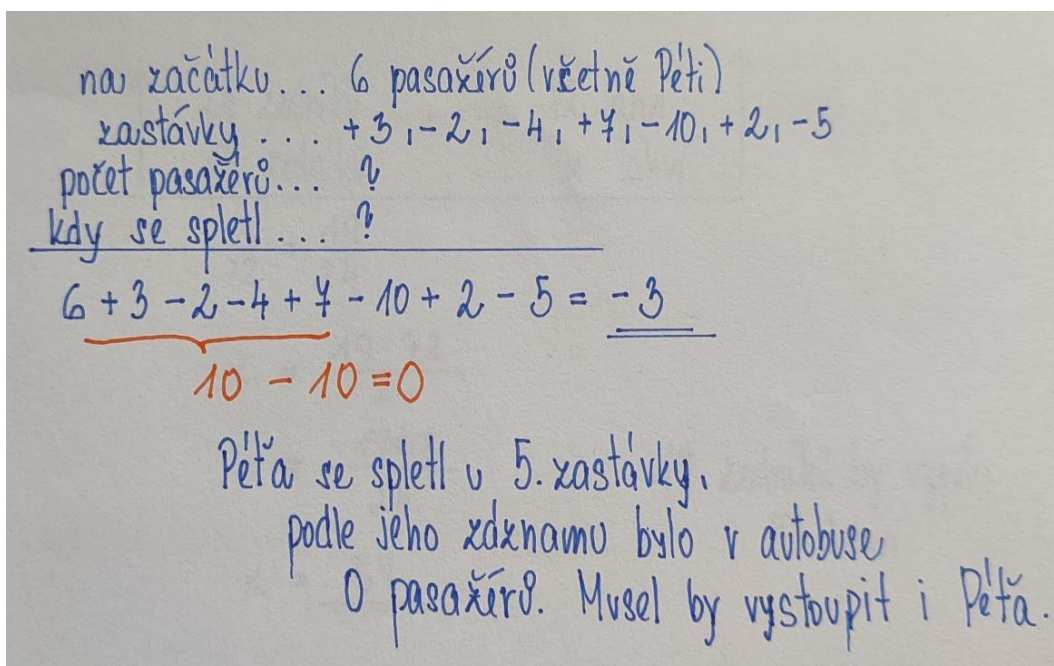 na začátku... 6 pasažérů (včetně Péti)
zastávky... +3, -2, -4, +7, -10, +2, -5
počet pasažérů... ?
kdy se spletl... ?
6 + 3 - 2 - 4 + 7 - 10 + 2 - 5 = -3
10 - 10 = 0
Péťa se spletl u 5. zastávky,
podle jeho záznamu bylo v autobuse
0 pasažérů. Musel by vystoupit i Péťa.